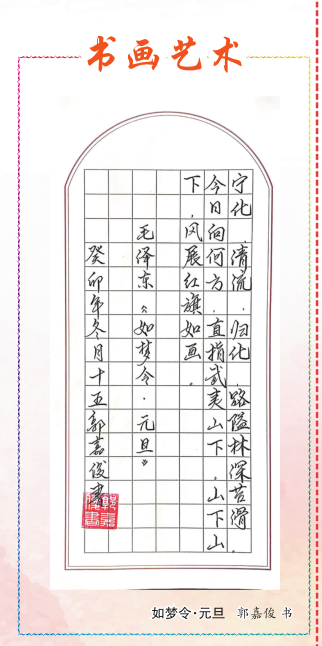 书画艺术
宁化、清流、归化 路隘林深苔滑.
今日向何方，直指武夷山下.山下山
下，风展红旗如画.
毛泽东《如梦令·元旦》
癸卯年冬月十五郭嘉俊書
郭嘉
俊書
如梦令·元旦 郭嘉俊 书